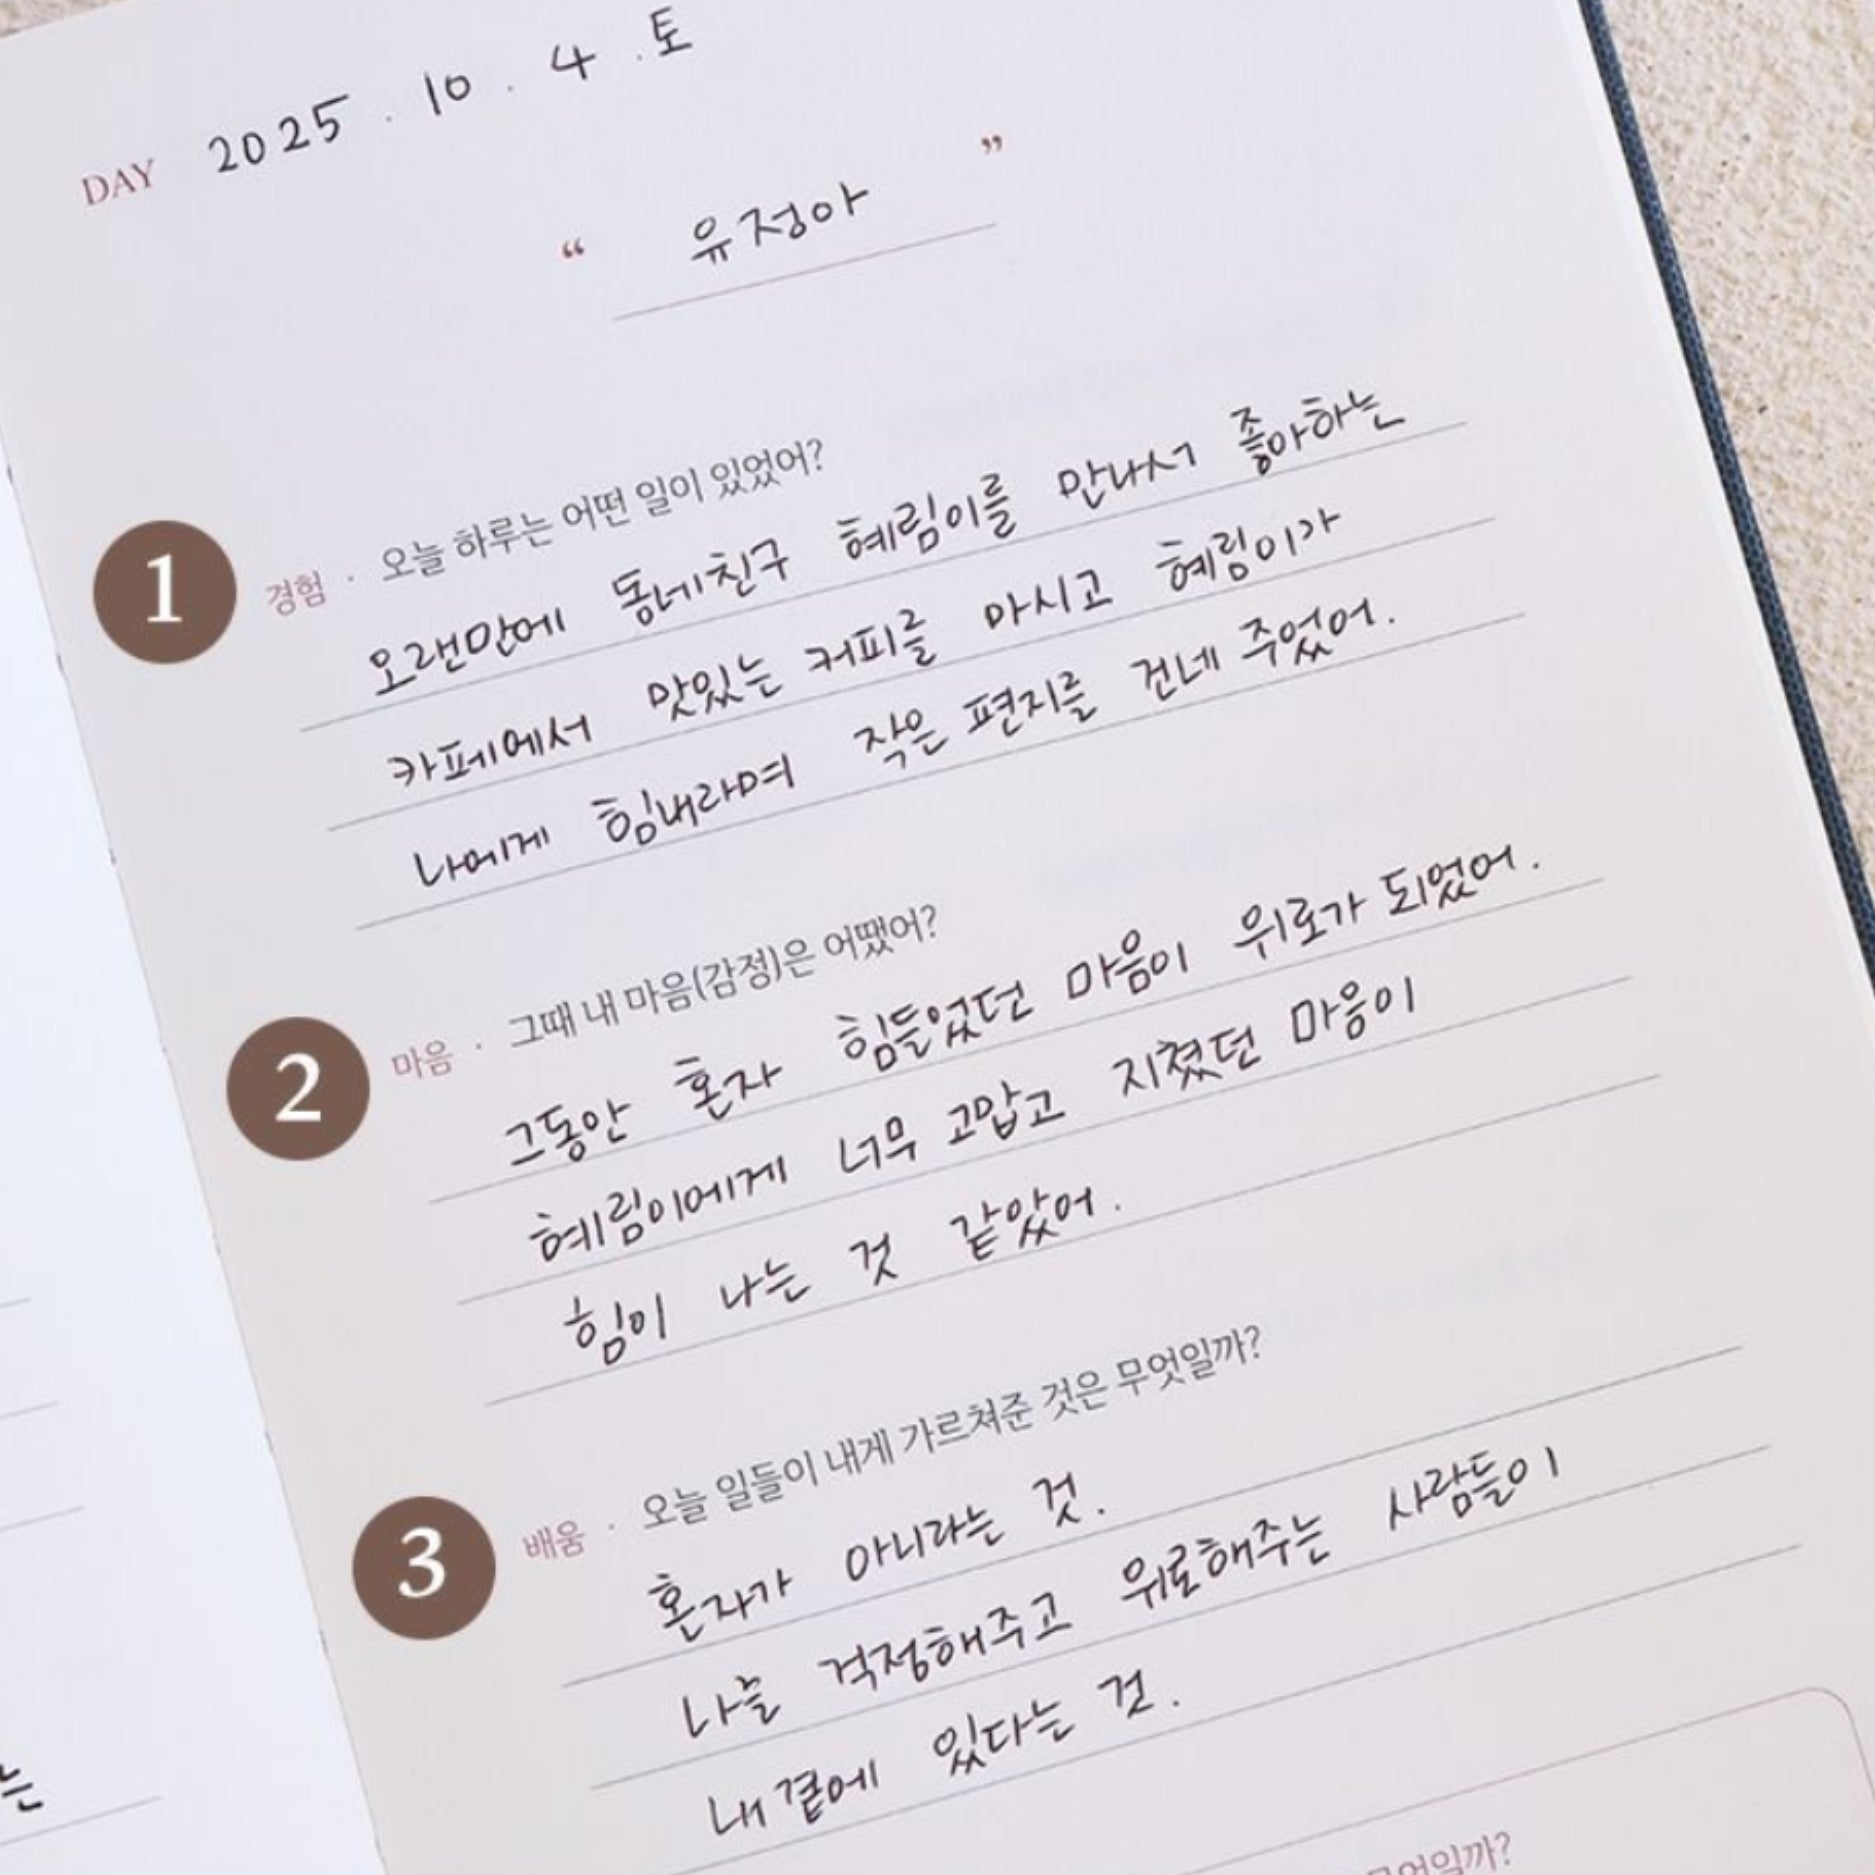 DAY 2025 . 10 . 4 . 토
“ 유정아 ”
1 경험 · 오늘 하루는 어떤 일이 있었어?
오랜만에 동네친구 혜림이를 만나서 좋아하는
카페에서 맛있는 커피를 마시고 혜림이가
나에게 힘내라며 작은 편지를 건네 주었어.
2 마음 · 그때 내 마음(감정)은 어땠어?
그동안 혼자 힘들었던 마음이 위로가 되었어.
혜림이에게 너무 고맙고 지쳤던 마음이
힘이 나는 것 같았어.
3 배움 · 오늘 일들이 내게 가르쳐준 것은 무엇일까?
혼자가 아니라는 것.
나를 걱정해주고 위로해주는 사람들이
내 곁에 있다는 것.
는
무엇일까?